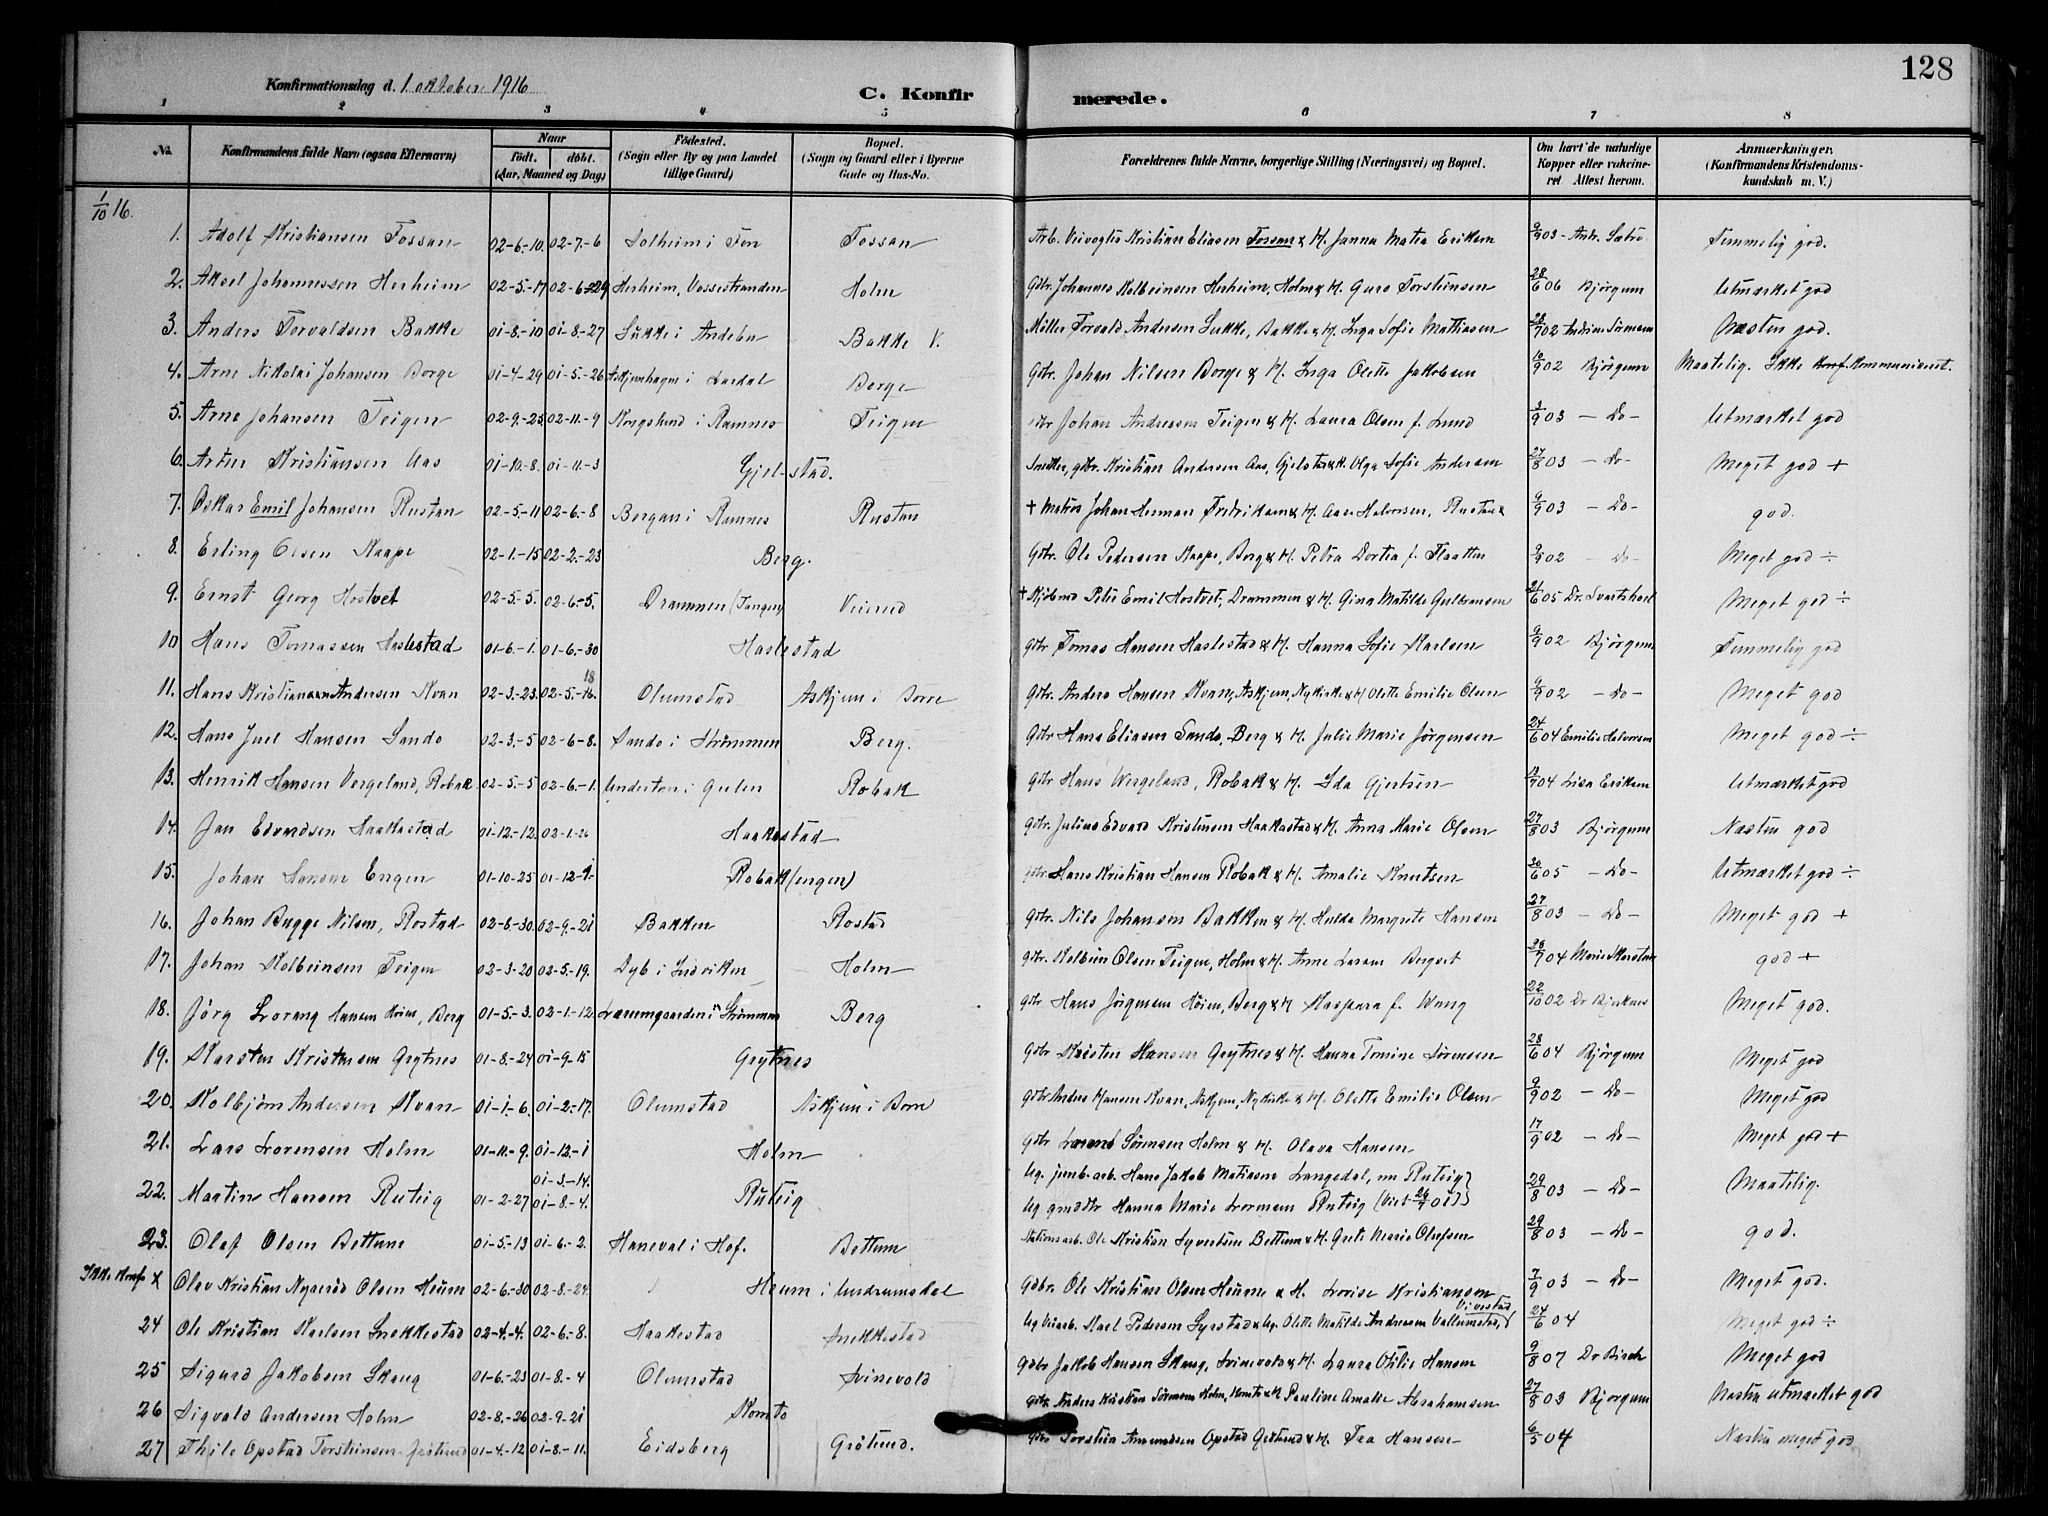 128
Konfirmationsdag d. 1 oktober 1916
C. Konfirmerede.
1 2 3 4 5 6 7 8
No. Konfirmandens fulde Navn (ogsaa Efternavn) Naar født. døbt. (Aar, Maaned og Dag) Födested. (Sogn eller By og paa Landet tillige Gaard) Bopæl. (Sogn og Gaard eller i Byerne Gade og Hus-No. Forældrenes fulde Navne, borgerlige Stilling (Næringsvei) og Bopæl. Om havt de naturlige Kopper eller vakcineret Attest herom. Anmærkninger. (Konfirmandens Kristendomskundskab m. V.)
1/10 16.
1. Adolf Kristiansen Fossan 02-6-10. 02-7-6 Solheim i Fossan Arb. Veivogter Kristian Eliasen Fossan & H. Janna Matea Eriksen 9/9 03 Andr. Sætre Temmelig god.
2. Aksel Johannessen Herheim 02-5-17 02-6-29 Herheim, Vossestranden Holm Gbr. Johannes Kolbeinsen Herheim, Holm & H. Guro Torsteinsen 28/6 06 Bjørgum Utmærket god
3. Anders Torvaldsen Bakke 01-8-10 01-8-27 Sukke i Andebu Bakke V. Møller Torvald Andersen Sukke, Bakke & H. Inga Sofie Mathiasen 02 Næsten god.
4. Arne Nikolai Johansen Borge 01-4-29 01-5-26 i Lardal Borge Gbr. Johan Nilsen Borge & H. Inga Olette Jakobsen 02 Bjørgum Maatelig. Ikke Konf. Kommunicent.
5. Arne Johansen Teigen 02-9-25 02-11-9 Kongslund i Ramnes Teigen Johan Andreassen Teigen & H. Laura Olsen f. Lund 3/9 03 - Do - Utmærket god
6. Artur Kristiansen Aas 01-10-8. 01-11-3 Gjelstad. Snedker, gbr. Kristian Andersen Aas, Gjelstad & H. Olga Sofie Andersen 27/8 03 - Do - Meget god +
7. Oskar Emil Johansen Rustan 02-5-11 02-6-8 Bergan i Ramnes Rustan + Matros Johan Herman Fredriksen & H. Aase Halvorsen, Rustan 9/9 03 - Do - god.
8. Erling Olsen Kaape 02-1-15 02-2-23 Berg. Gbr. Ole Pedersen Kaape, Berg & H. Petra Dortea f. Flaatten 9/9 02 - Do - Meget god ÷
9. Ernst Georg Hostvet 02-5-5. 02-6-5. Drammen (Tangen) Vierud + Kjøbmd Peter Emil Hostvet, Drammen & H. Gina Matilde Gulbransen 21/6 05 Dr. Meget god ÷
10 Hans Tomassen Haslestad 01-6-1. 01-6-30 Haslestad Gbr Tomas Hansen Haslestad & H. Hanna Sofie Karlsen 9/9 02 Bjørgum Temmelig god
11. Hans Kristian Andersen Kvan 02-3-23. 02-5-18 Olumstad Askjem i Borre Gbr. Anders Hansen Kvan, Askjem, Nykirke & H. Olette Emilie Olsen 9/9 02 - Do - Meget god
12. Hans Juel Hansen Sando 02-3-5 02-6-8. Sando i Strømmen Berg. Gbr Hans Eliasen Sando, Berg & H. Julie Marie Jørgensen 24/6 04 Emilie Halvorsen Meget god ÷
13. Henrik Hansen Vergeland, Robak 02-5-5 02-6-1. i Gulen Robak Gbr Hans Wergeland, Robak & H. Ida Gjertsen 04 Lisa Eriksen Utmærket god
14. Jan Edvardsen Haakastad 01-12-12. 02-1-26 Haakestad Gbr. Julius Edvard Kristensen Haakastad & H. Anna Marie Olsen 27/8 03 Bjørgum Næsten god
15. Johan Hansen Engen 01-10-25 01-12-1. Robak (engen) Gbr. Hans Kristian Hansen Robak & H. Amalie Knutsen 30/6 05 - Do - Utmærket god ÷
16. Johan Bugge Nilsen, Rostad 02-6-30. 02-9-21 Bakken Rostad Gbr. Nils Johansen Bakken & H. Hulda Margrete Hansen 27/8 03 - Do - Meget god +
17. Johan Kolbeinsen Teigen 02-3-20 02-5-19. Dyb i Holm Gbr. Kolbein Olsen Teigen, Holm & H. Anne 04 Marie god +
18. Jörg Lorang Hansen Hvim, Berg 01-5-3. 02-1-12 i Strømmen Berg Gbr Hans Jörgensen Hvim, Berg & H. Kaspara f. Wang 22/10 02 Dr Meget god.
19. Karsten Kristensen Grytnes 01-8-24 01-9-15 Grytnes Gbr Kristen Hansen Grytnes & H. Hanna Tomine Sørensen 28/6 04 Bjørgum Meget god
20. Kolbjørn Andersen Kvan 01-1-6. 01-2-17. Olumstad Askjem i Borre Gbr Anders Hansen Kvan, Askjem, Nykirke & H. Olette Emilie Olsen 9/9 02 - Do - Meget god
21. Lars Lorensen Holm 01-11-9. 01-12-1 Holm Gbr Lorens Sørensen Holm & H. Olava Hansen 17/9 02 - Do - Meget god +
22. Martin Hansen Ruteig 01-2-27 01-3-14. 01-8-4. Ruteig Ug. jernb.arb. Hans Jakob Matiasen Langedal, nu Ruteig } Ug. Hanna Marie Lorensen Ruteig 29/8 03 - Do - Maatelig.
23. Olaf Olsen Bettum 01-5-13 01-6-2. Haneval i Hof. Bettum Stationsarb. Ole Kristian Syvertsen Bettum & H. Grete Marie Olufsen 29/8 03 - Do - god.
Ikke Konf. x Olav Kristian Nyerød Olsen Heum 02-6-30 02-8-24. Heum i Undrumsdal Gdbr. Ole Kristian Olsen Heum & H. Lovise Kristiansen 7/9 03 - Do - Meget god.
24 Ole Kristian Karlsen Snekkestad 02-4-4. 02-6-8. Haakestad Snekkestad Ug. Karl Pedersen & Ug. Olette Matilde Andersen Vallumstad, Vivestad 24/6 04 Meget god ÷
25 Sigurd Jakobsen Skaug 01-6-23 01-8-4 Olumstad Svinevold Gdbr Jakob Hansen Skaug, Svinevold & H. Laura Otilie Hansen 9/8 07 Dr Birch Meget god
26 Sigvald Andersen Holm 02-8-26 02-9-21 Komto Gbr. Anders Kristian Sørensen Holm, Komto & H. Pauline Amalie Abrahamsen 27/8 03 Bjørgum Næsten utmærket god
27 Thile Opstad Torsteinsen Grötund 01-4-12 01-8-11. Eidsberg Grötund. Gbr Torstein Amundsen Opstad Grötund & H. Tea Hansen 6/5 04 Næsten meget god